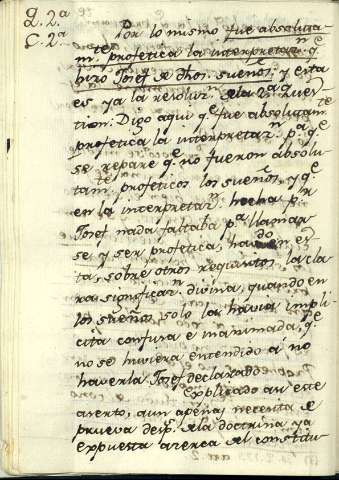 Q. 2.ª
C. 2.ª
Por lo mismo fue absoluta-
m.te profetica la interpretaz.n q.e
hizo Josef de dhos. sueños: y esta
es ya la resoluz.n de la 2.a ques-
tion. Digo aqui q.e fue absolutam.te
profetica la interpretaz.n p.a q.e
se repare q.e no fueron absolu-
tam.te profeticos los sueños, y q.e
en la interpretaz.n hecha p.r
Josef nada faltaba p.a llamar
se y ser profetica, haviendo en es-
ta, sobre otros requisitos la cla-
ra significaz.n divina, quando en
los sueños solo la havia impli-
cita confusa e inanimada, q.e
no se huviera entendido a no
haverla Josef declarado.
Explicado asi este
aserto, aun apenas necesita de
prueva desp.s de la doctrina ya
expuesta acerca del constitu-